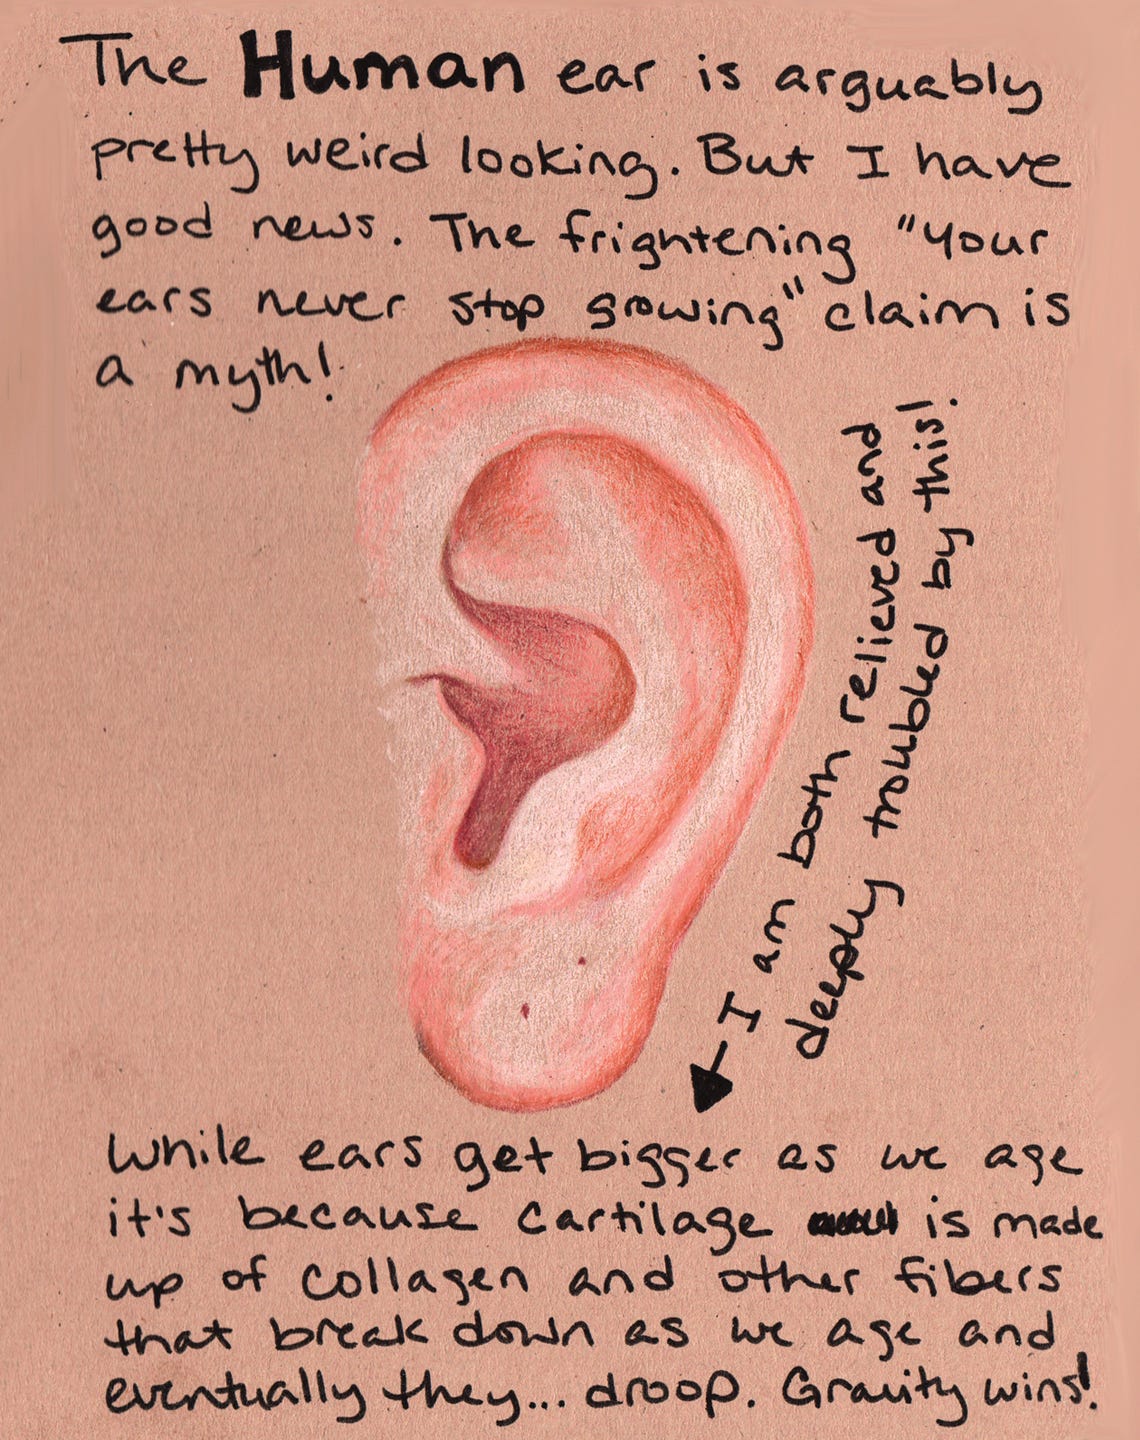 The Human ear is arguably
pretty weird looking. But I have
good news. The frightening "your
ears never stop growing" claim is
a myth!
I am both relieved and
deeply troubled by this!
While ears get bigger as we age
it's because cartilage is made
up of collagen and other fibers
that break down as we age and
eventually they... droop. Gravity wins!